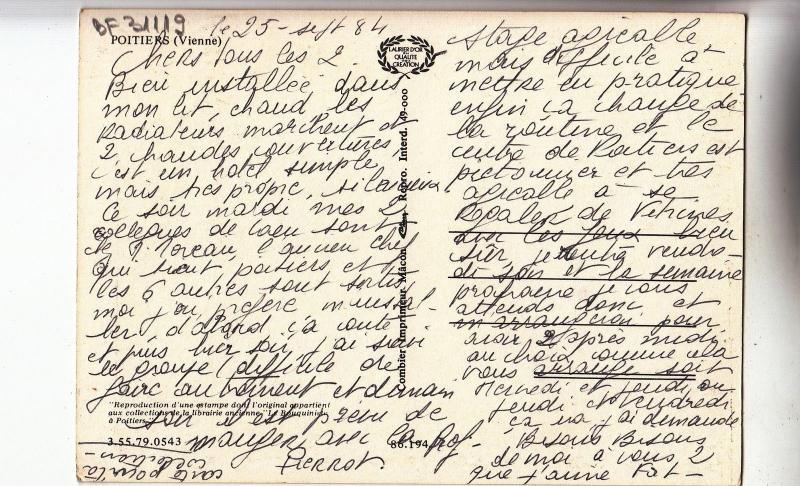 BF 31119
le 25 - sept 84
POITIERS (Vienne)
Chers tous les 2.
Bien installée dans
mon lit, chaud, les
radiateurs marchent et
2 chaudes couvertures
c'est un hotel simple
mais très propre, silencieux
Ce soir mardi mes 2
collègues de Caen sont
chez P. Moreau, l'ancien chef
qui Poitiers et
les 6 autres sont sortis
moi j'ai préféré m'instal-
ler, d'abord ça coute
et puis hier soir j'ai suivi
le groupe (difficile de
faire autrement et demain
soir c'est prévu de
manger avec la Prof.
Pierrot.
carte pour ta
collection
LAURIER D'OR
DE QUALITÉ
DE CRÉATION
"Reproduction d'une estampe dont l'original appartient
aux collections de la librairie ancienne "Le Bouquiniste"
à Poitiers"
3.55.79.0543
86.194
Combier Imprimeur Mâcon Repro. Interd. 49-000
Stage agréable
mais difficile à
mettre en pratique
enfin ça change de
la routine et le
centre de Poitiers est
piétonnier et très
agréable à se
Régaler de Vitrines
sur les yeux bien
sûr, je rentre vendre-
di soir et la semaine
prochaine je vous
attends donc et
m'arrangerai pour
avoir 2 après midi
au choix comme cela
vous arrange soit
Mercredi et jeudi ou
jeudi et Vendredi
ça va, j'ai demandé
Bisous Bisous
de moi à vous 2
que j'aime Kat -